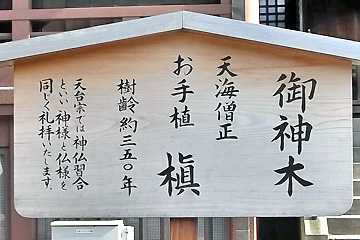 御神木
天海僧正
お手植
槇
樹齢約三五〇年
天台宗では神仏習合
といい神様と仏様を
同じく礼拝いたします。